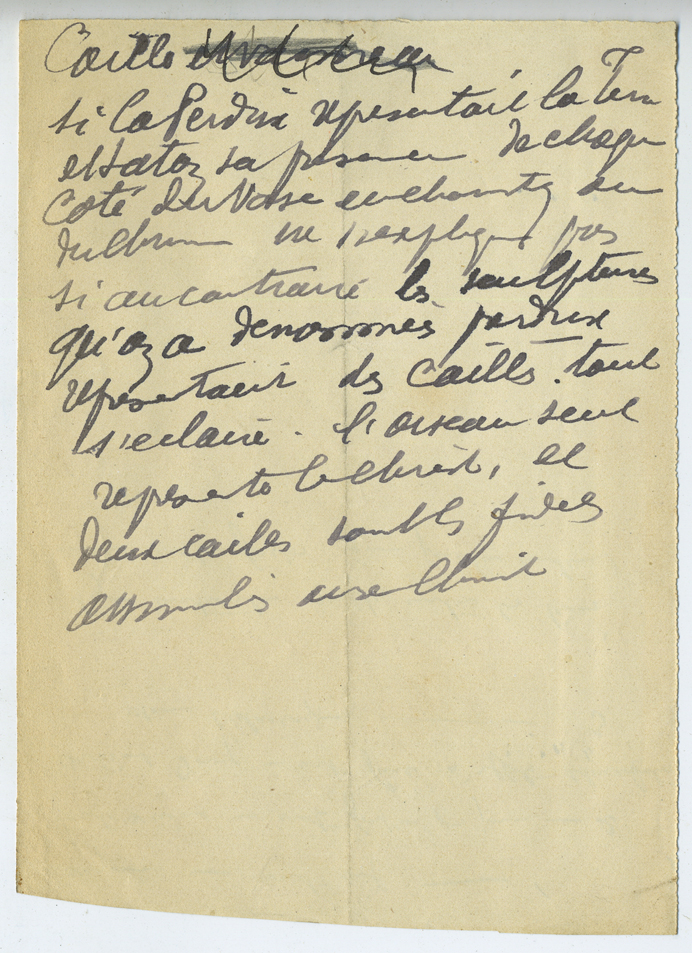 Caille
si la Perdrix representait la Terre
et Satan sa presence de chaque
coté du Vase
ne s'explique pas
si au contraire les sculptures
qu'on a denommés perdrix
representent des Cailles. tout
s'eclaire. l'oiseau seul
represente le Christ, et
deux cailles sont les fideles
assimilés au Christ